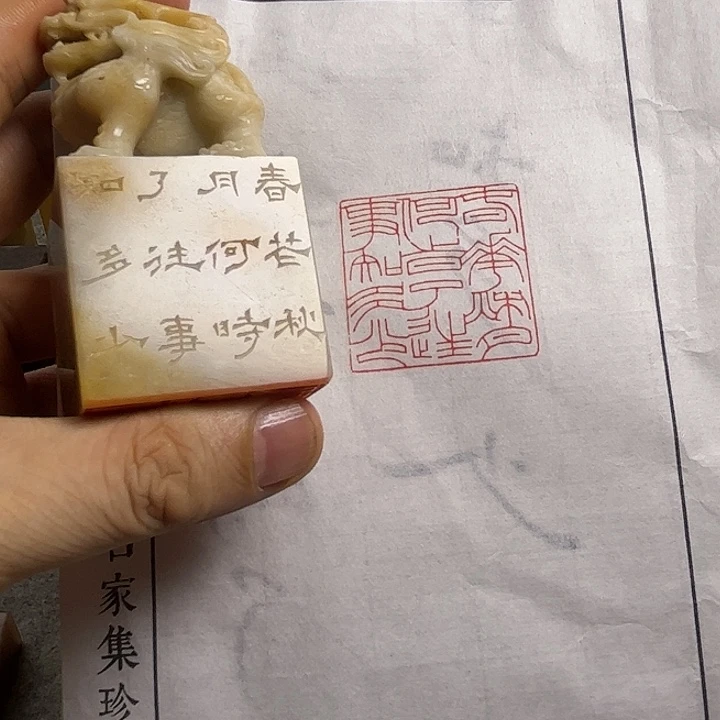 春花秋
月何時
了往事
知多少
春花秋月
何時了往
事知多少
家集珍